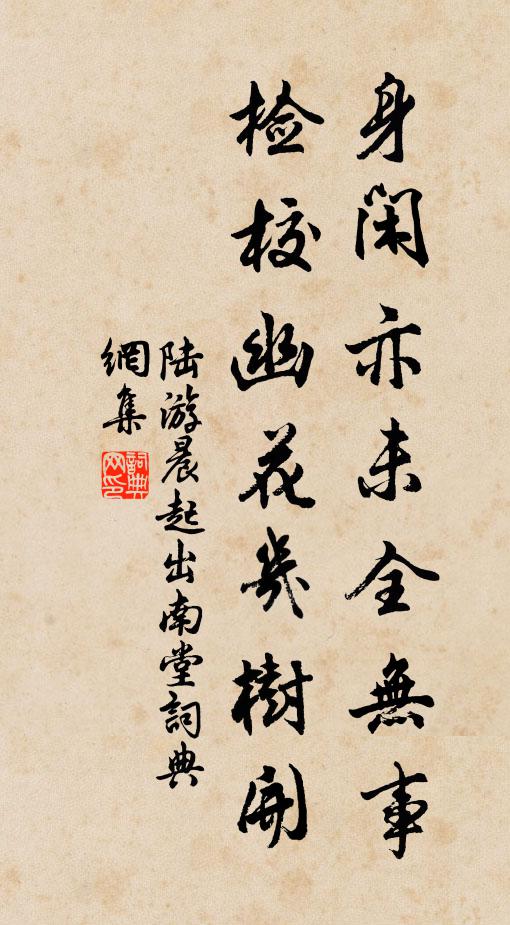 身閑亦未全無事
檢校幽花幾樹開
陆游晨起出南堂詞典
網集
詞典
网印